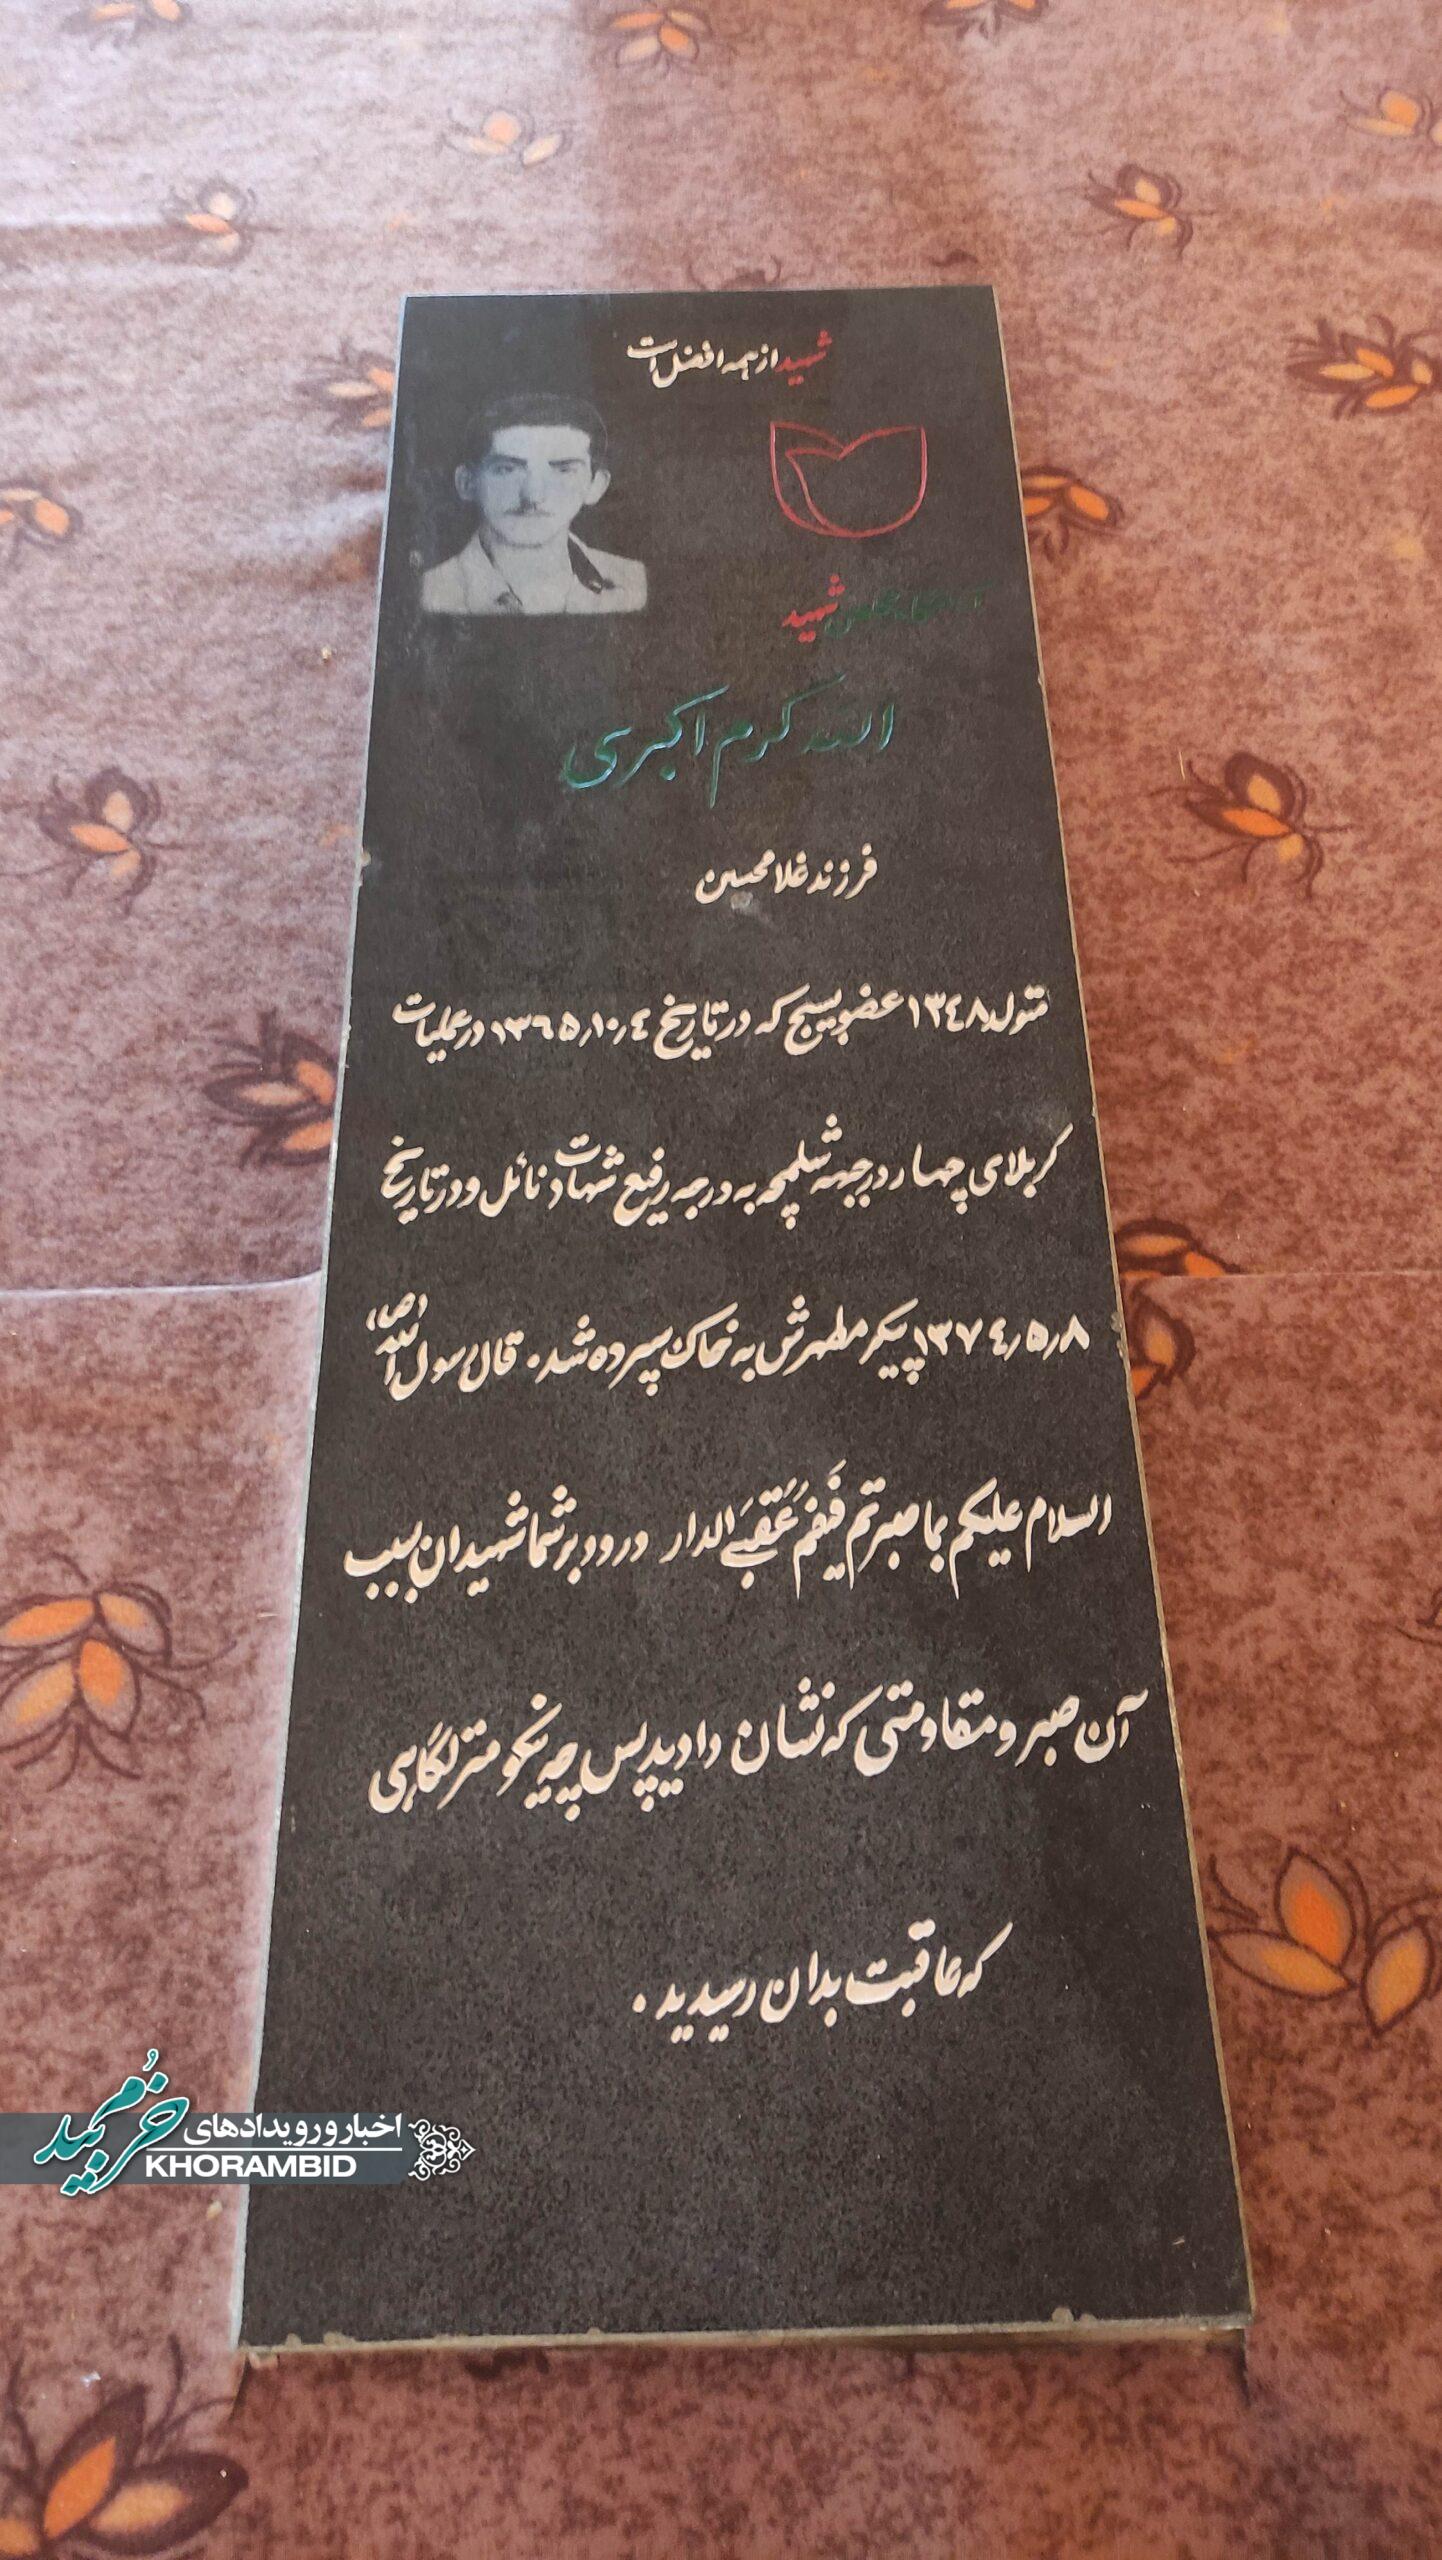 شهید از همه افضل است
شهید
الله کرم اکبری
فرزند غلامحسین
متولد ۱۳۴۸ عضو بسیج که در تاریخ ۱۳۶۵/۱۰/۴ در عملیات
کربلای چهار در جبهه شلمچه به درجه رفیع شهادت نائل و در تاریخ
۱۳۷۴/۵/۸ پیکر مطهرش به خاک سپرده شد. قال رسول الله (ص)
السلام علیکم بما صبرتم فَنِعْمَ عُقْبَی الدار درود بر شما شهیدان بسبب
آن صبر و مقاومتی که نشان دادید پس چه نیکو منزلگاهی
که عاقبت بدان رسیدید.
اخبار و رویدادهای
خُرمبید
KHORAMBID